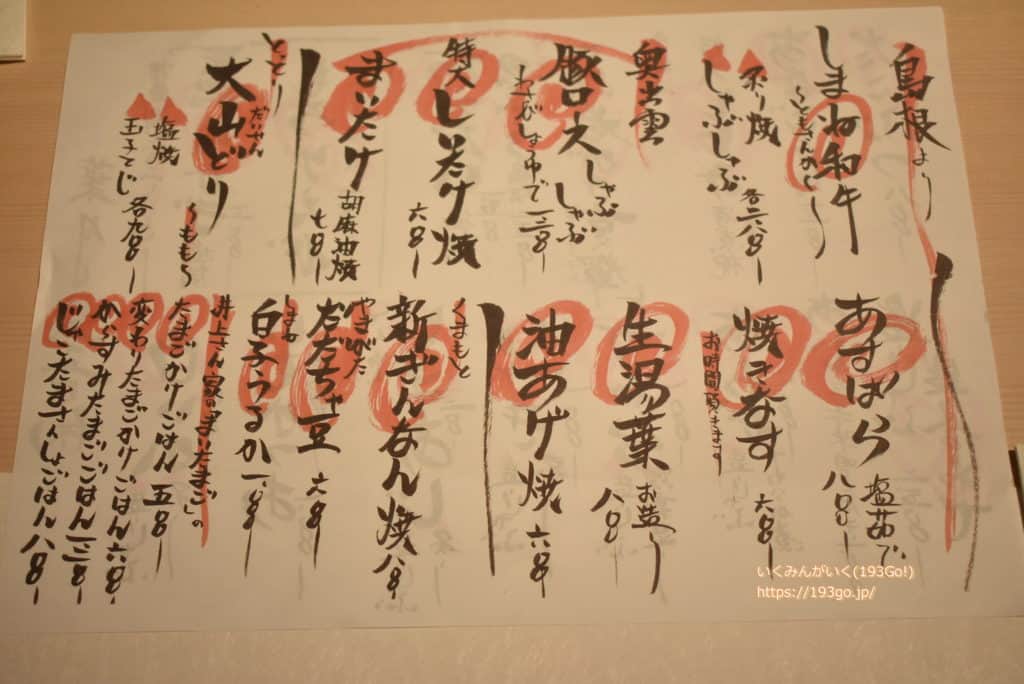 島根より
しまね和牛
炙り焼
しゃぶしゃぶ
各二六八〇ー
奥出雲
豚ロース
しゃぶしゃぶ
わさびしょうゆで 一三八〇ー
特大しいたけ焼
六八〇ー
まいたけ
胡麻油焼
七八〇ー
とっとり
大山どり
だいせん
〜もも〜
塩焼
玉子とじ 各九八〇ー
あすぱら
塩茹で
八八〇ー
焼きなす
お時間頂きます
六八〇ー
生湯葉
お造り
八八〇ー
油あげ焼 六八〇
くまもと
新ぎんなん焼 八八〇
やまがた
だだちゃ豆 六八〇
白子うるか
井上さん家の「まいたまご」の
たまごかけごはん 五八〇
変わりたまごかけごはん 六八〇
からすみたまごごはん 一三八〇
じゃこたまさんしょごはん 八八〇
いくみんがいく(193Go!)
https://193go.jp/